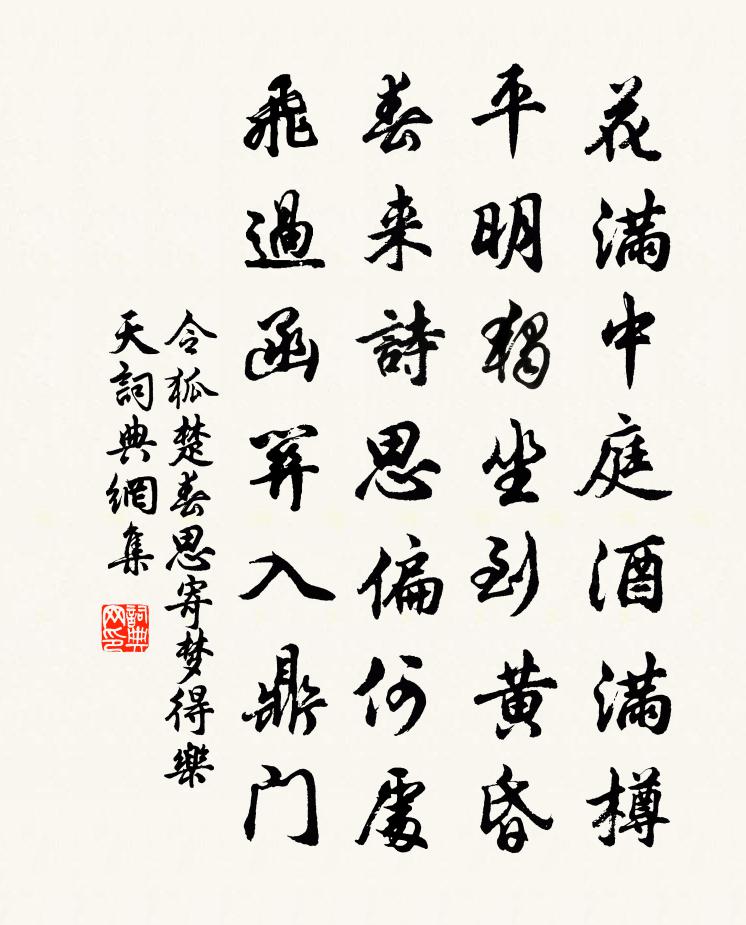 花滿中庭酒滿樽
平明獨坐到黃昏
春来詩思偏何處
飛過函關入鼎门
令狐楚春思寄梦得樂
天詞典網集
詞典
网印